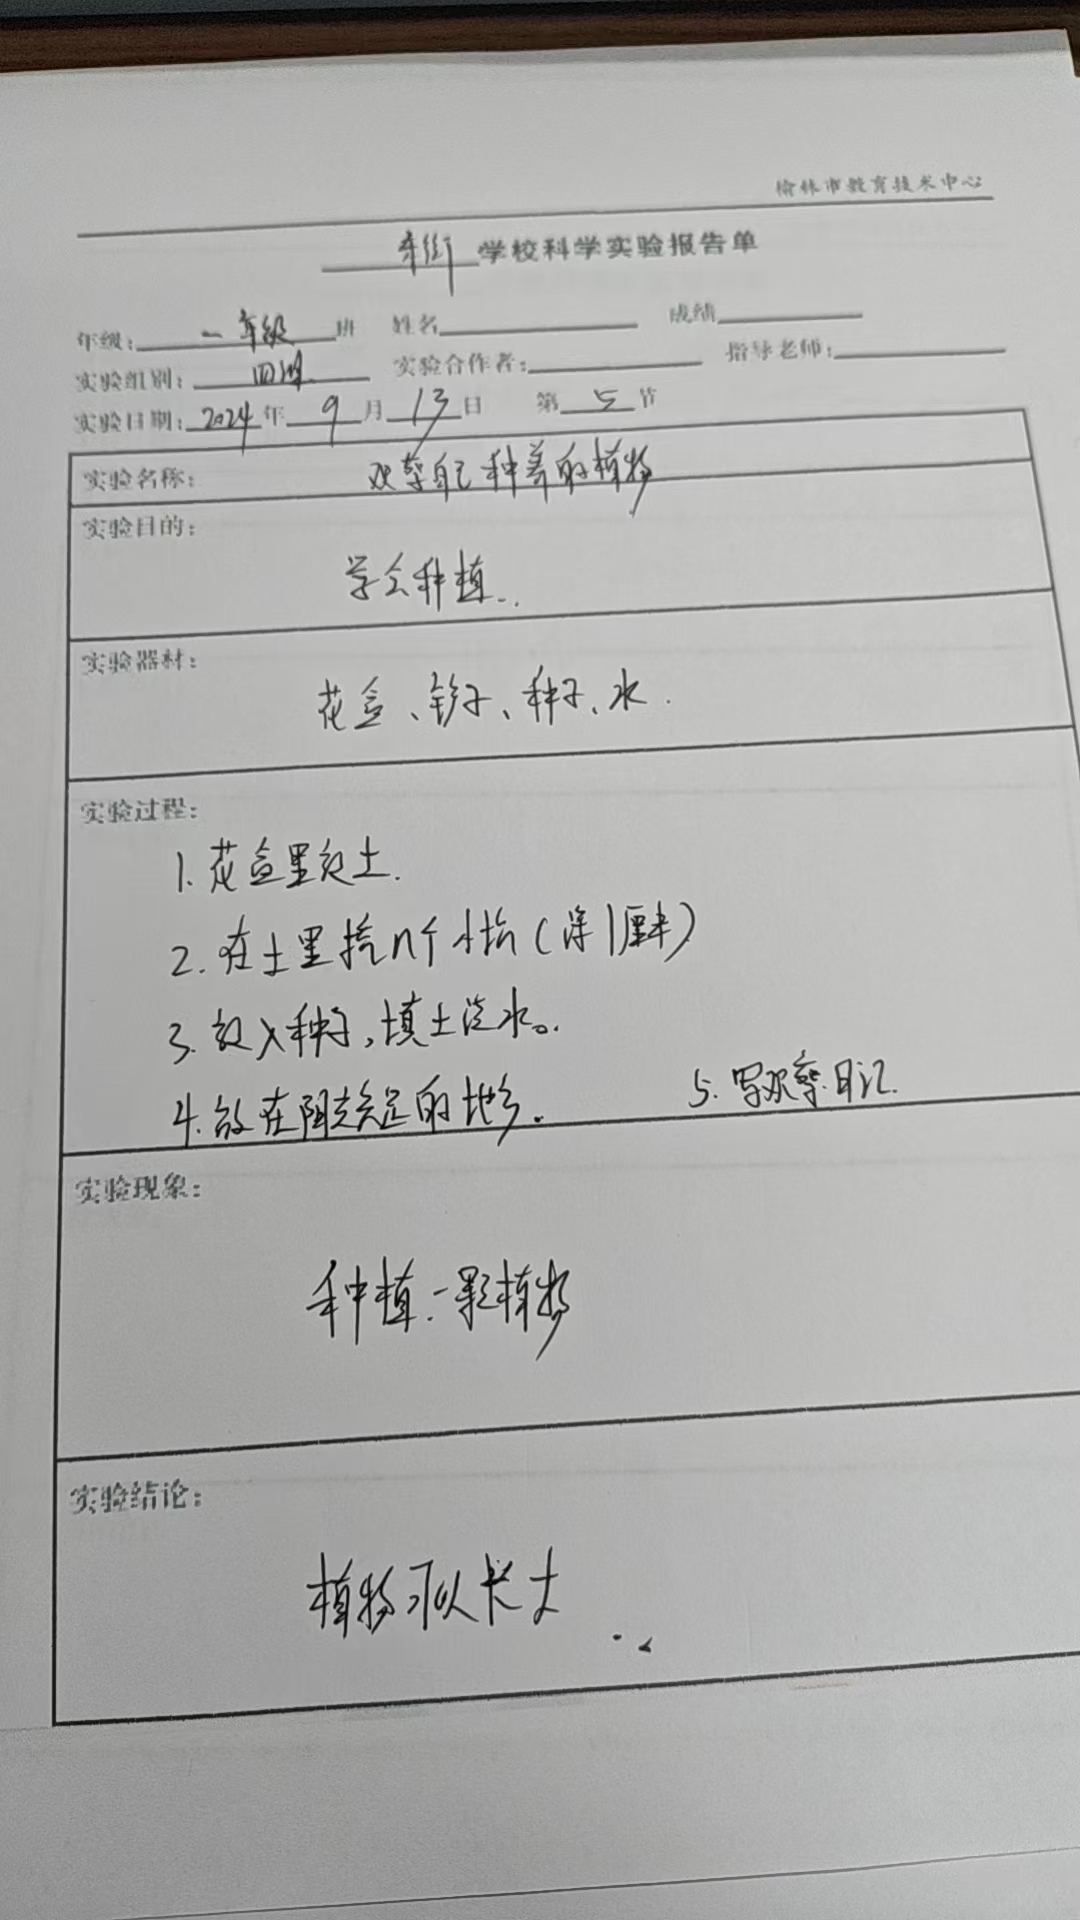 榆林市教育技术中心
东街学校科学实验报告单
年级:一年级班 姓名 成绩
实验组别:四组 实验合作者: 指导老师:
实验日期:2024年9月13日 第5节
实验名称: 观察自己种养的植物
实验目的:
学会种植
实验器材:
花盆、铲子、种子、水.
实验过程:
1. 花盆里放土.
2. 在土里挖几个小坑(深1厘米)
3. 放入种子,填土浇水。
4. 放在阳光充足的地方. 5. 写观察日记.
实验现象:
种植一颗植物
实验结论:
植物可以长大